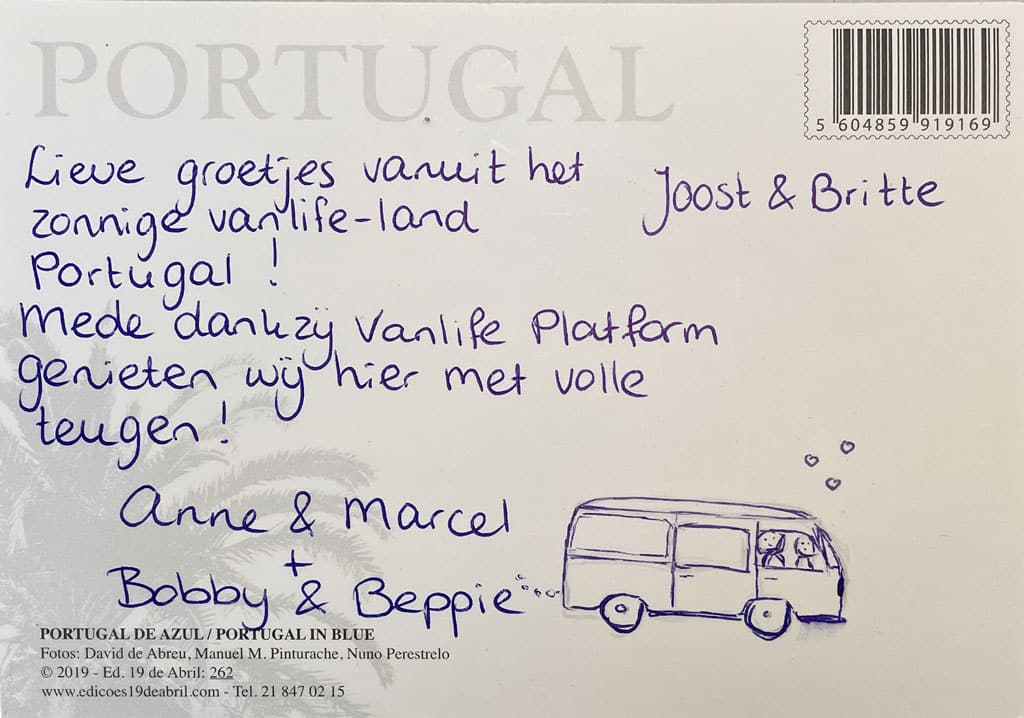 PORTUGAL
5 604859 919169
Lieve groetjes vanuit het
zonnige vanlife-land
Portugal !
Mede dankzij Vanlife Platform
genieten wij hier met volle
teugen!
Anne & Marcel
+
Bobby & Beppie
Joost & Britte
PORTUGAL DE AZUL / PORTUGAL IN BLUE
Fotos: David de Abreu, Manuel M. Pinturache, Nuno Perestrelo
© 2019 - Ed. 19 de Abril: 262
www.edicoes19deabril.com - Tel. 21 847 02 15